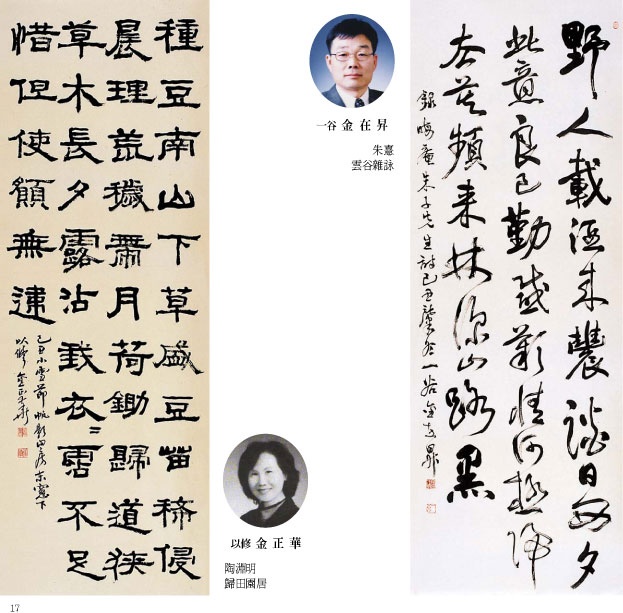 野人載酒來農談日西夕
此意良已勤感歎情何極歸
去莫頻來林深山路黑
錄晦庵朱子先生詩己丑肇冬一谷金在昇
一谷 金在昇
朱憙
雲谷雜詠
種豆南山下草盛豆苗稀侵
晨理荒穢帶月荷鋤歸道狹
草木長夕露沾我衣〻霑不足
惜但使願無違
己丑小雪節帆影山房東窓下
以修金正華
以修 金正華
陶淵明
歸田園居
17